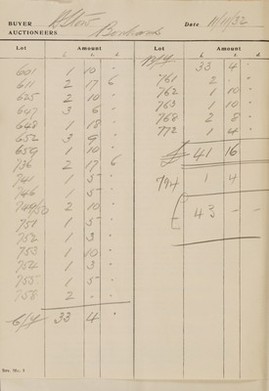 BUYER
AUCTIONEERS
Date 11/11/32
Lot Amount
£ s. d.
601 1 10 "
611 2 17 6
625 2 10 "
647 3 6 "
648 1 18 "
652 3 9 "
659 1 10 "
736 2 17 6
741 1 5 "
746 1 5 "
749/50 2 10 "
751 1 5 "
752 1 3 "
753 1 10 "
754 1 3 "
755 1 5 "
758 2 " "
C/f 33 4 "
Lot Amount
£ s. d.
B/f 33 4 "
761 2 " "
762 1 10 "
763 1 10 "
768 2 8 "
772 1 4 "
£ 41 16 "
794 1 4
43 - -